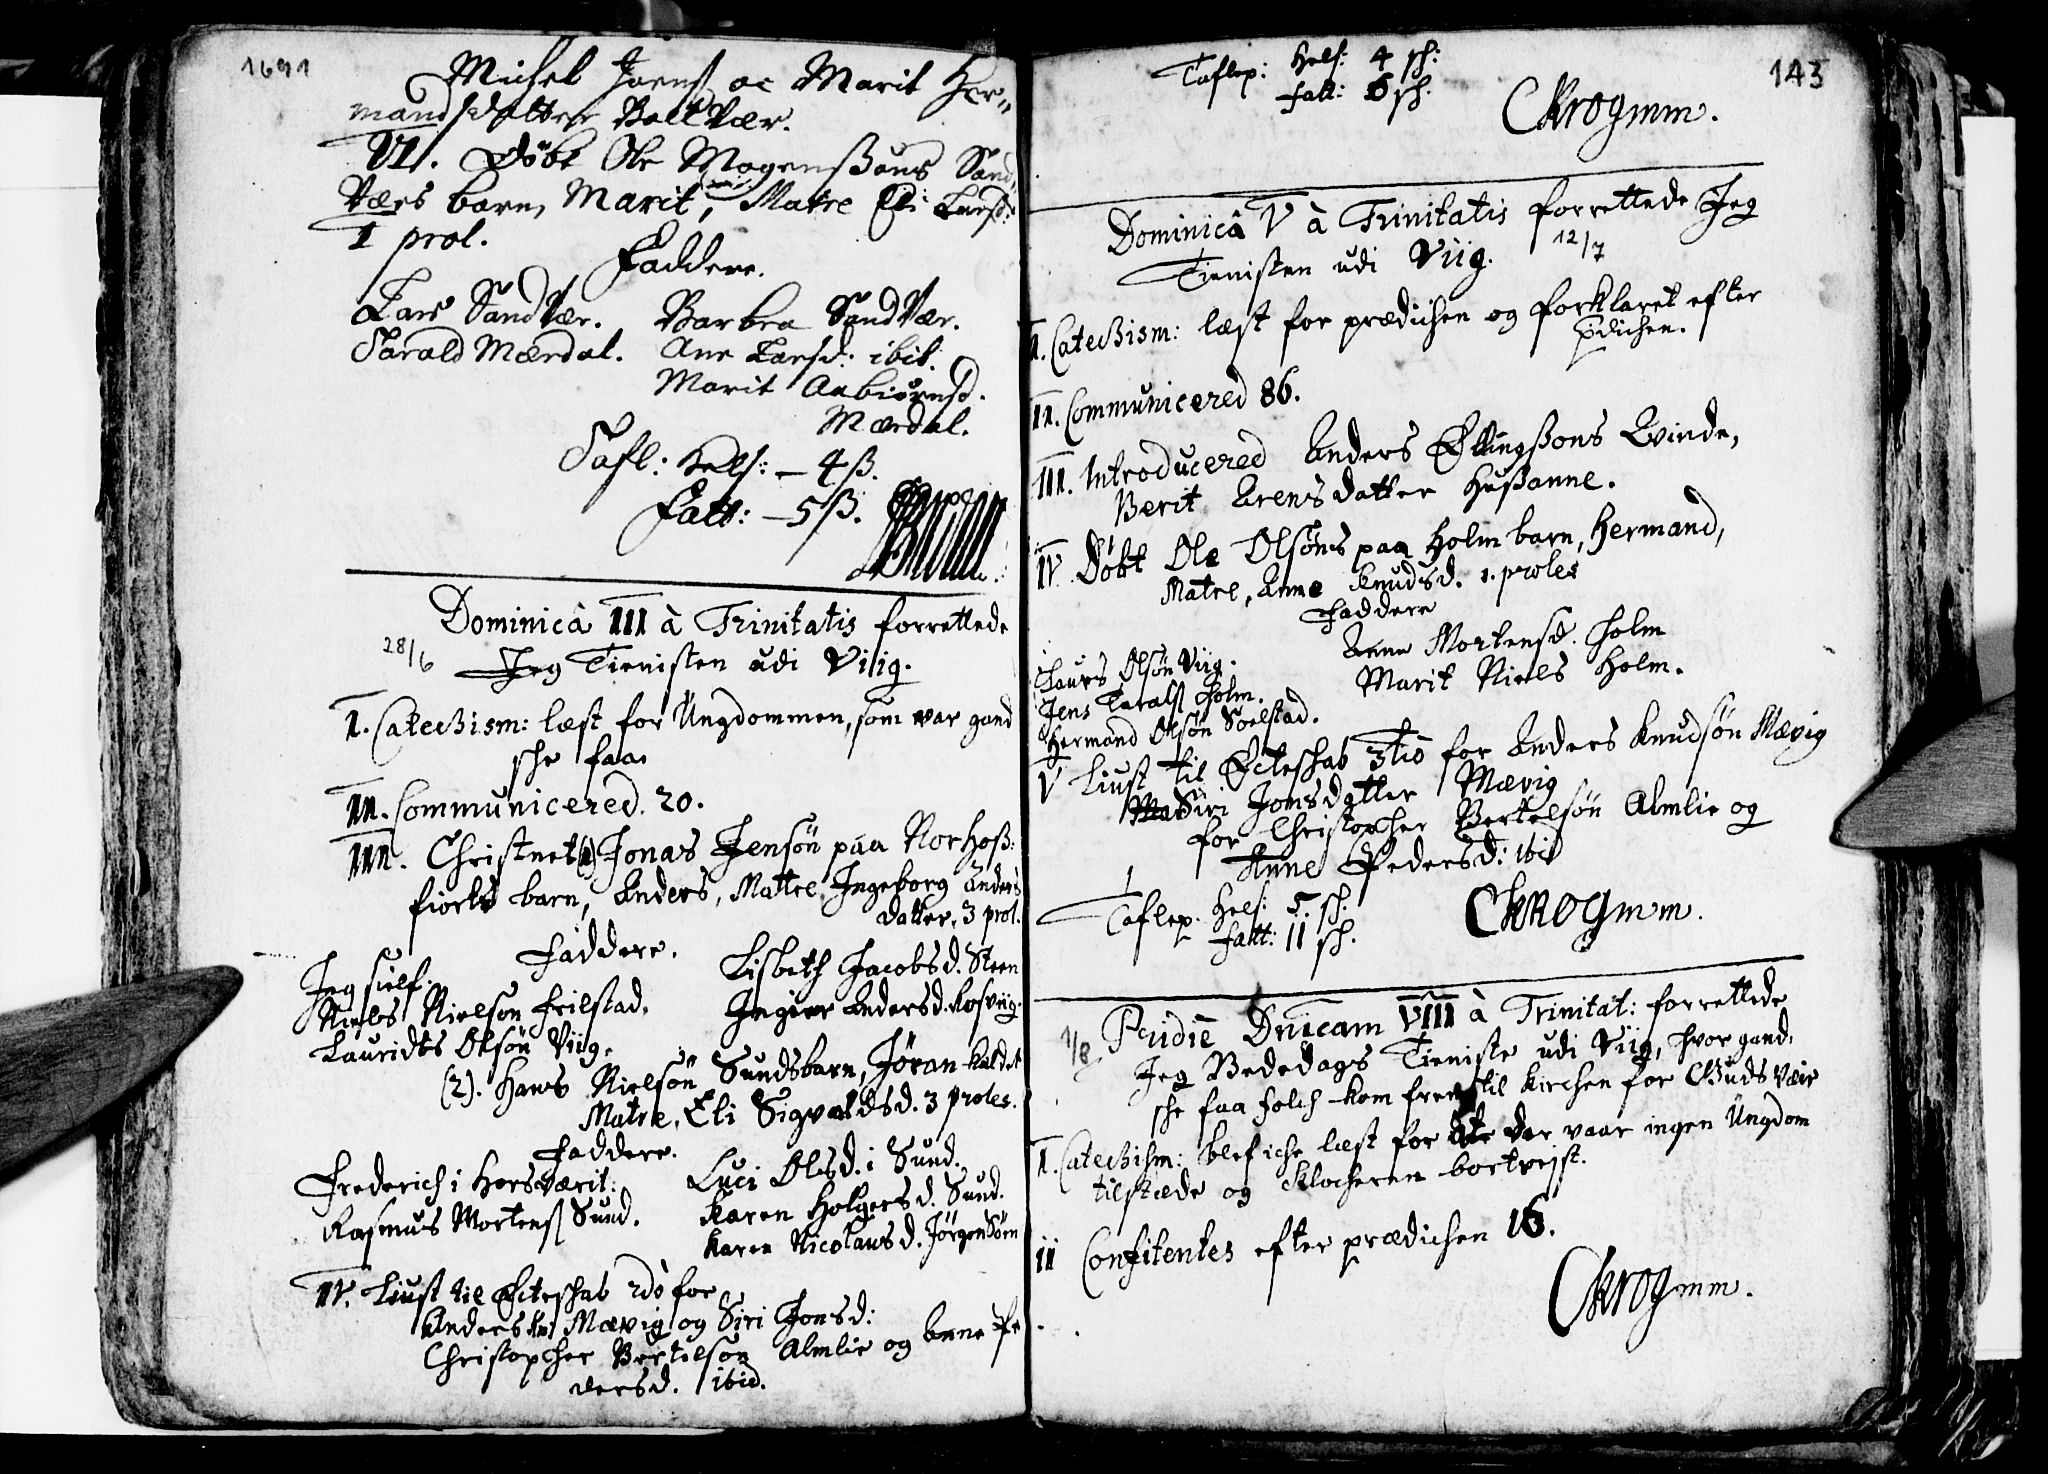 1691
Michel Joens oc Marit Her-
mandsdatter Balt Vær.
VI. Døbt Ole Mogenßøns Sand
Værs barn, Marit, Matre Eli Larsd:
I prol.
Faddere.
Lars Sand Vær. Barbra Sand Vær.
Tarald Mærdal. Ane Larsd: ibit.
Marit Asbiørnsd.
Mærdal.
Tafl: Hels: – 4 ß.
Fatt: – 5 ß.
Dominicâ III à Trinitatis forrettede
28/6 Jeg Tienisten udi Viig.
I. Catechism: læst for Ungdommen, som war gand
sche faa.
II. Communicered. 20.
III. Christnet (1) Jonas Jensøn paa Norhoß:
fiorts barn, Anders, Matre Ingeborg Anders
datter, 3 prol.
Faddere.
Jeg sielf. Lisbeth Jacobsd. Steen
Niels Nielsøn Frilstad. Ingier Andersd. Rosviig.
Lauridts Olsøn Viig.
(2). Hans Nielsøn Sundsbarn, Jøran kaldet
Matre, Eli Sigvaldsd. 3 proles.
Faddere.
Frederich i Hors Værit: Luci Olsd. i Sund.
Rasmus Mortens Sund. Karen Holgersd. Sund.
Karen Nicolausd. Jørgen Søen
IV. Liust til Ecteschab 2dò for
Anders Kn: Mævig og Siri Jonsd:
Christopher Bertelsøn Almlie og Anne Pe
dersd. ibid.
143
Taflep: Hels: 4 sch:
Fatt: 6 sch.
CKrogmm.
Dominicâ V à Trinitatis forrettede Jeg
Tienisten udi Viig. 12/7
I. Catechism: læst for prædichen og forklaret efter
pdichen.
II. Communicered 86.
III. Introducered Anders Ellingßøns Qvinde,
Berit Arensdatter Hußanne.
IV. Døbt Ole Olsøns paa Holm barn, Hermand,
Matre, Anne Knudsd. 1. proles
Faddere
Laurs Olsøn Viig. Anne Mortensd. Holm
Jens Taralss Holm. Marit Niels Holm.
Hermand Olsøn Soelstad.
V Liust til Ecteschab 3tiò for Anders Knudsøn Mævig
Siri Jonsdatter Mævig
for Christopher Bertelsøn Almlie og
Anne Pedersd: ibid
Taflep. Hels: 5. sch:
Fatt: 11 sch.
CKrogmm.
1/8 Pridie Dnicam VIII à Trinitat: forrettede
Jeg Bededags Tieniste udi Viig, hvor gand,
sche faa folch kom frem til Kirchen for Guds Veir
I. Catechism: blef iche læst for der vaar ingen Ungdom
tilstæde og Klocheren bortreist.
II Confitentes efter prædichen 16.
CKrogmm.